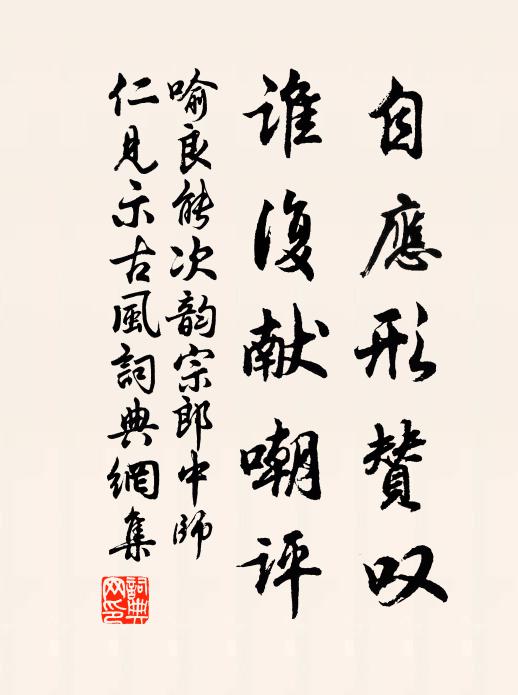 自應形贊叹
誰復献嘲评
喻良能次韵宗郎中師
仁見示古風詞典網集
詞典网印